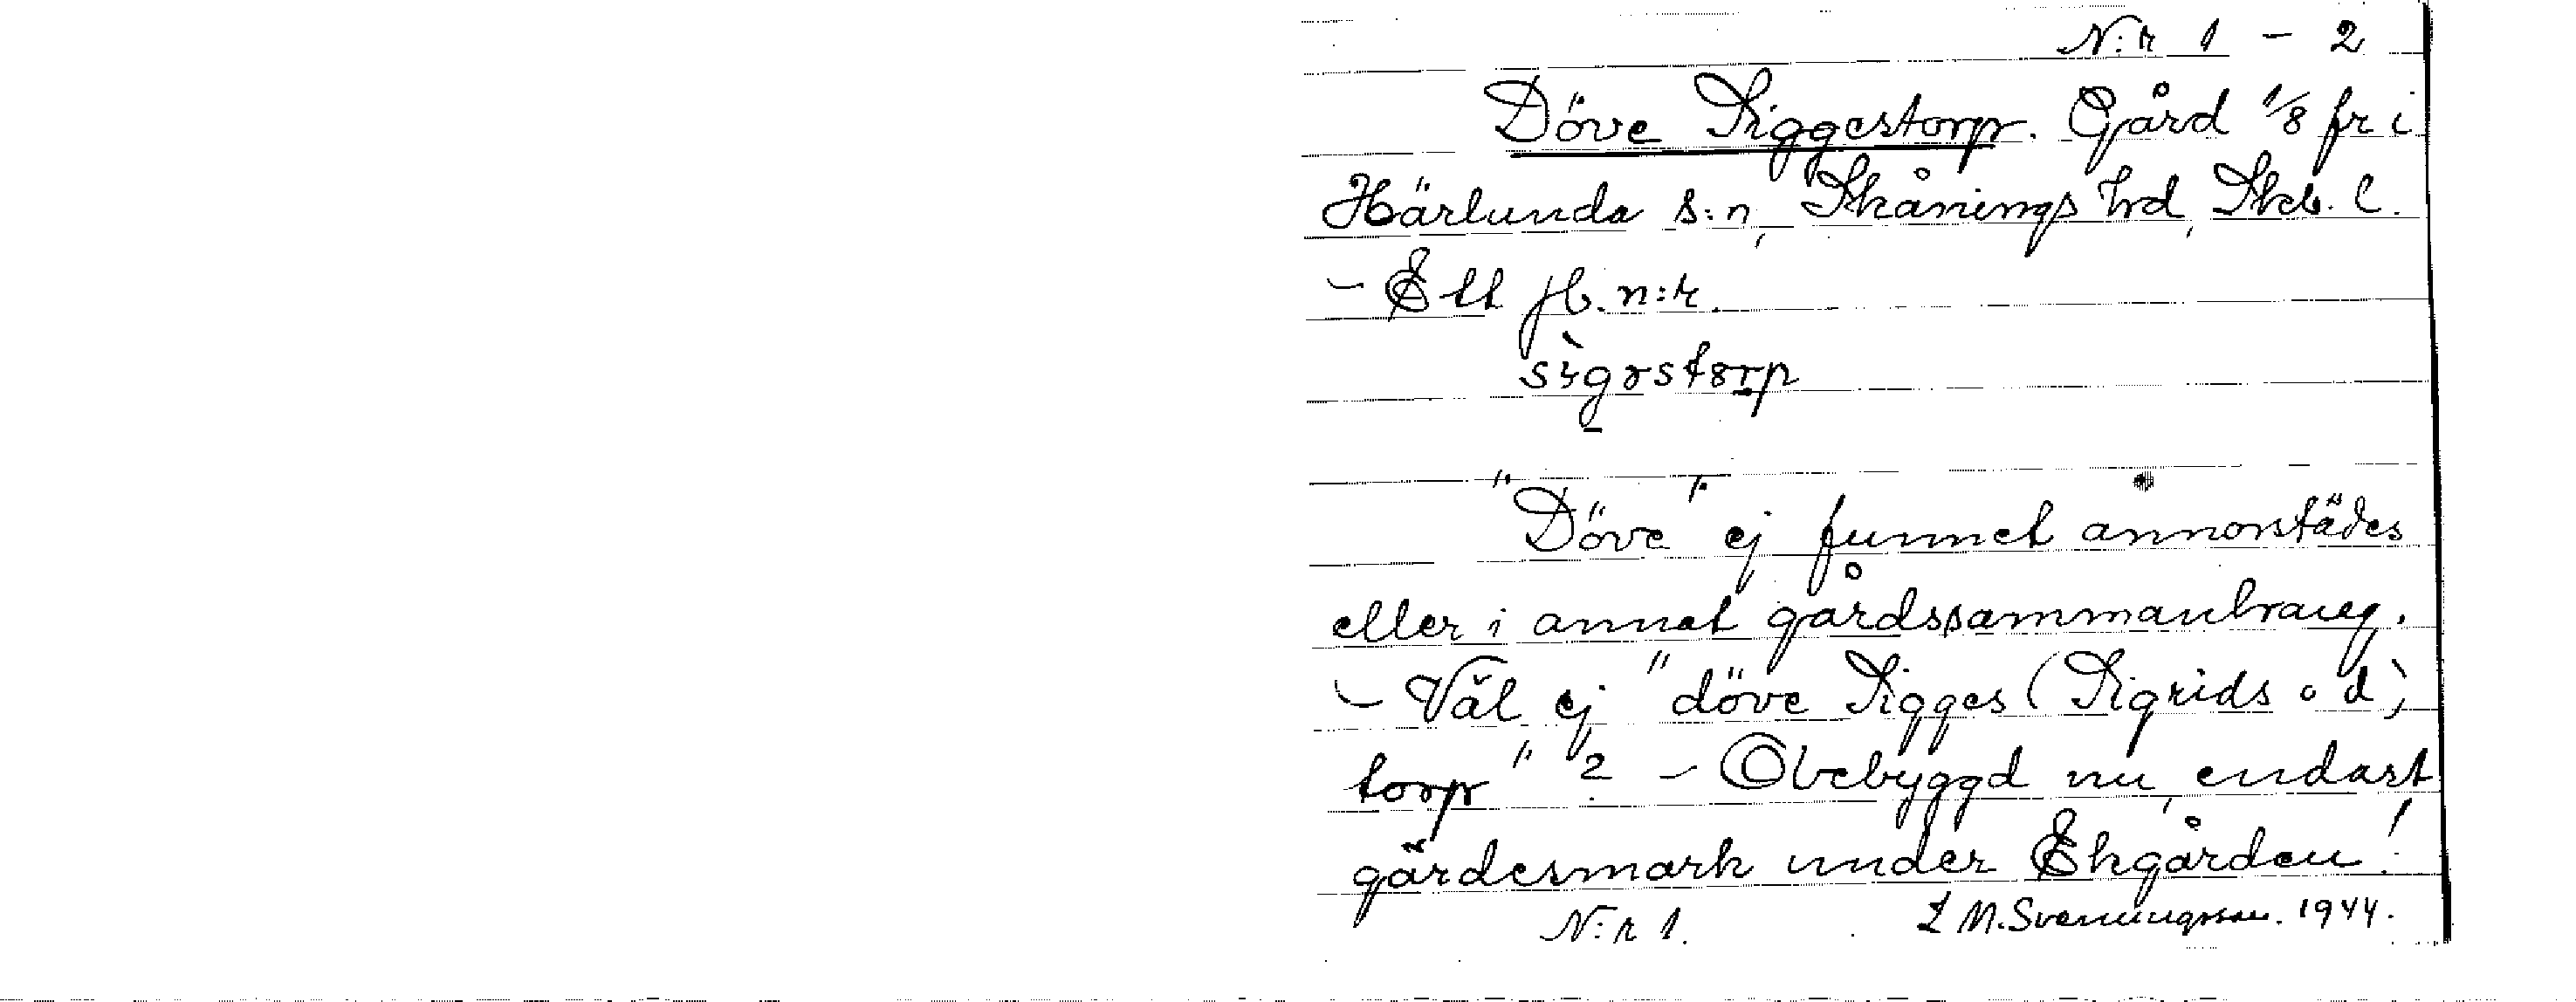 N:r 1 - 2
Döve Siggestorp. Gård 1/8 fr i
Härlunda s:n, Skånings hd, Skb. l.
- Ett jb. n:r.
"Döve" ej funnet annorstädes
eller i annat gårdssammanhang.
- Väl ej "döve Sigges (Sigrids o d)
torp"? - Obebyggd nu, endast
gärdesmark under Ekgården!
N:r 1. L M. Svenungsson. 1944.